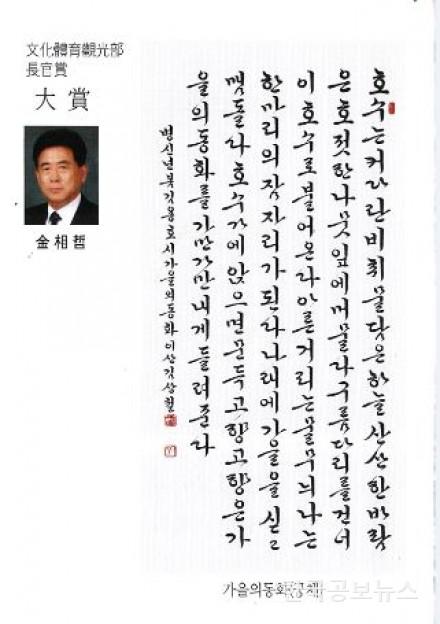 文化體育觀光部
長官賞
大賞
金相哲
호수는커다란비취물닿은하늘산산한바람
은호젓한나뭇잎에머물다구름다리를건너
이호수로불어온다아른거리는물무늬나는
한마리의잠자리가된다나래에가을을실
맴돌다호수가에앉으면문득고향고향은가
을의동화를가만가만내게들려준다
병신년봄김용호시가을의동화이산김상철
가을의동화(궁체)
한국공보뉴스